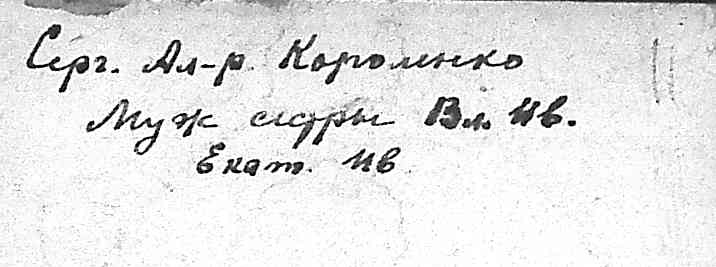 Серг. Ал-р. Короленко
Муж сестры Вл. Ив.
Екат. Ив